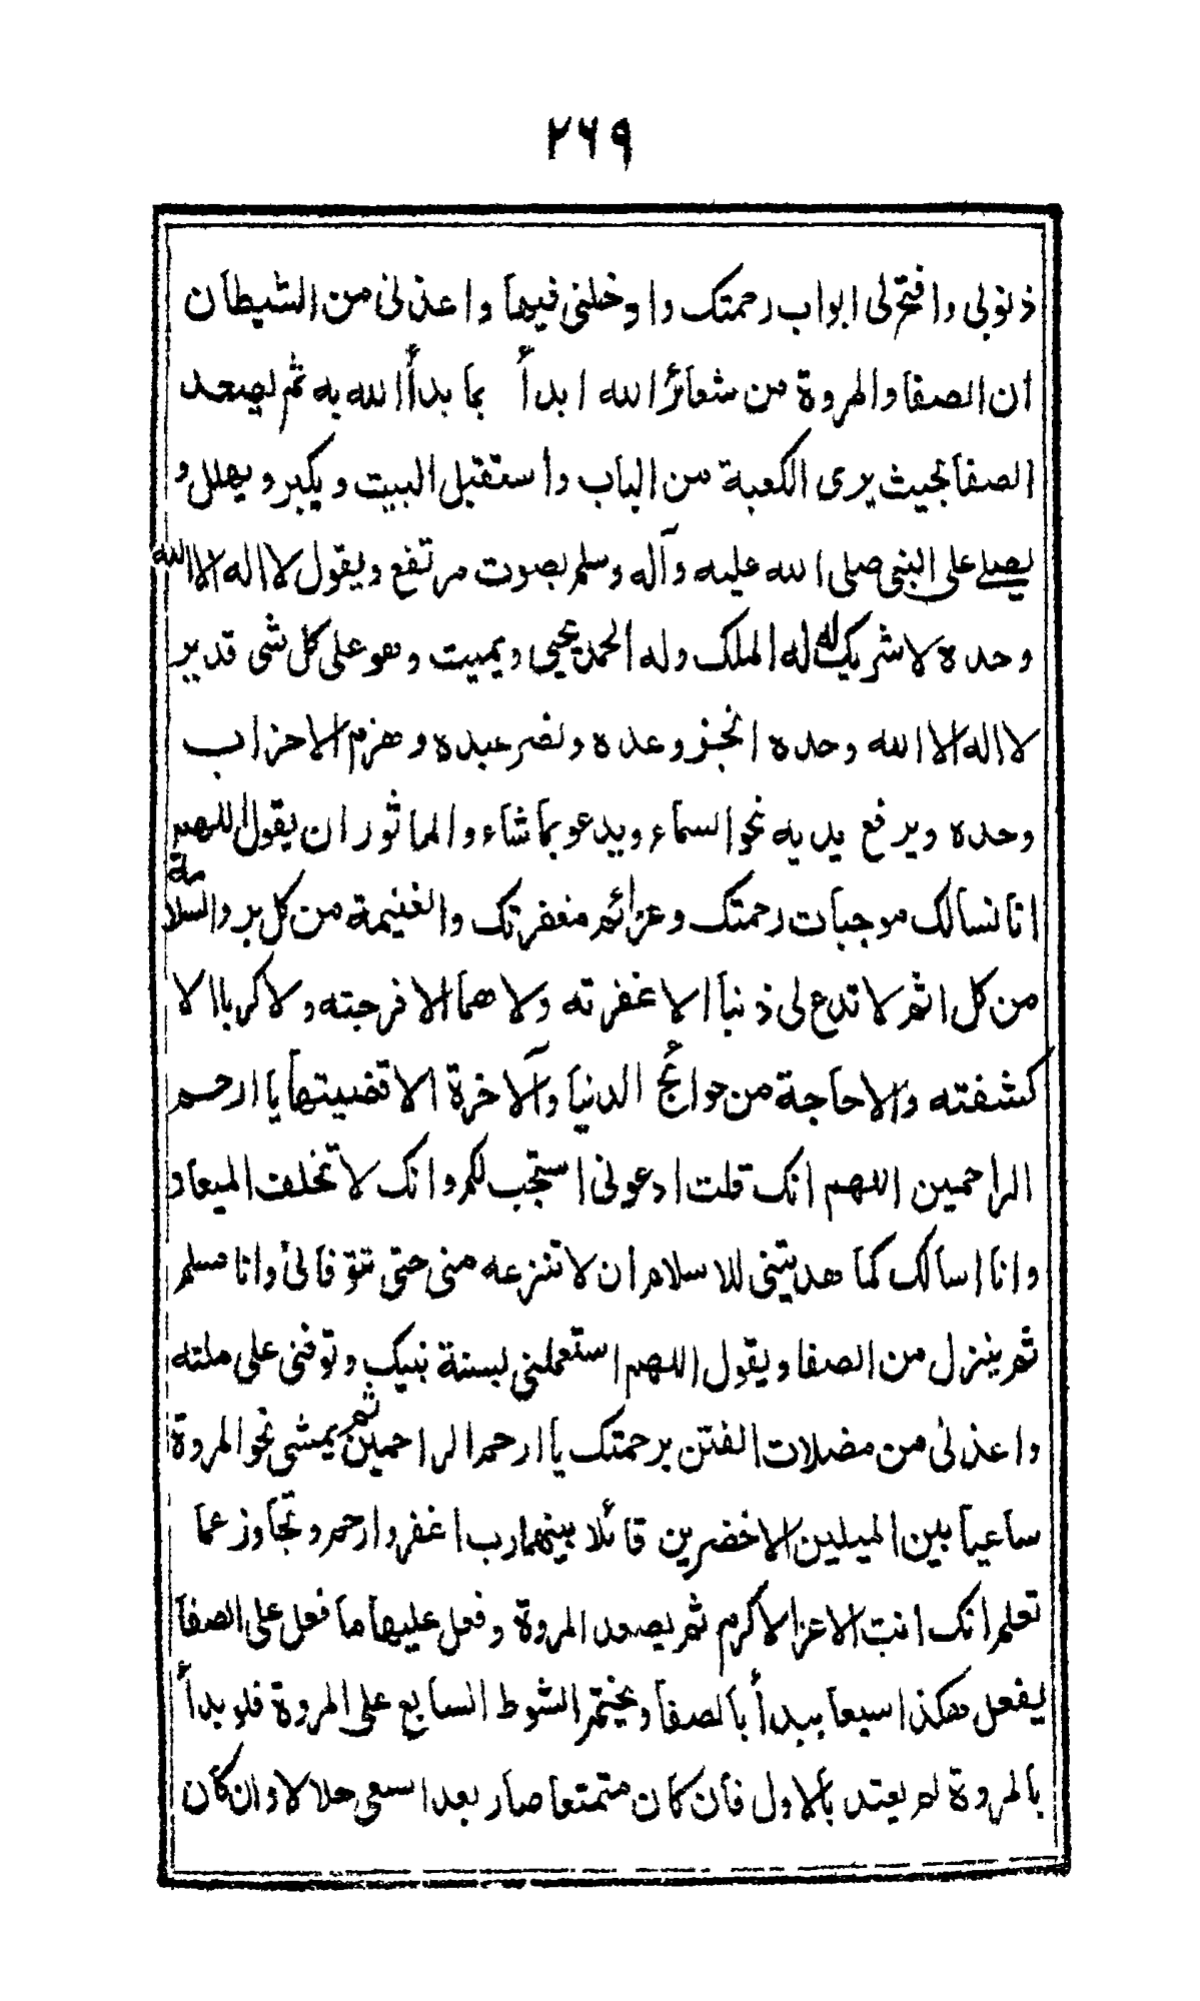 ٢٦٩
ذنوبى وافتح لى ابواب رحمتك وادخلنى فيها واعذنى من الشيطان
ان الصفا والمروة من شعائر الله ابدأ بما بدأ الله به ثم يصعد
الصفا بحيث يرى الكعبة من الباب واستقبل البيت ويكبر ويهلل و
يصلے على النبى صلى الله عليه وآله وسلم بصوت مرتفع ويقول لا اله الا الله
وحده لا شريك له له الملك وله الحمد يحيى ويميت وهو على كل شى قدير
لا اله الا الله وحده انجز وعده ونصر عبده وهزم الاحزاب
وحده ويرفع يديه نحو السماء ويدعو بما شاء والماثور ان يقول اللهم
انا نسالك موجبات رحمتك وعزائم مغفرتك والغنيمة من كل بر والسلامة
من كل اثم لا تدع لى ذنبا الا غفرته ولا هما الا فرجته ولا كربا الا
كشفته والا حاجة من حوائج الدنيا والآخرة الا قضيتها يا ارحم
الراحمين اللهم انك قلت ادعونى استجب لكم وانك لا تخلف الميعاد
وانا اسالك كما هديتنى للاسلام ان لا تنزعه منى حتى تتوفانى وانا مسلم
ثم ينزل من الصفا ويقول اللهم استعملنى بسنة نبيك وتوفنى على ملته
واعذنى من مضلات الفتن برحمتك يا ارحم الراحمين ثم يمشى نحو المروة
ساعيا بين الميلين الاخضرين قائلا بينهما رب اغفر وارحم وتجاوز عما
تعلم انك انت الاعز الاكرم ثم يصعد المروة وفعل عليها ما فعل على الصفا
يفعل هكذا سبعا يبدأ بالصفا ويختم الشوط السابع على المروة فلو بدأ
بالمروة لم يعتد بالاول فان كان متمتعا صار بعد اسعى حلالا وان كان